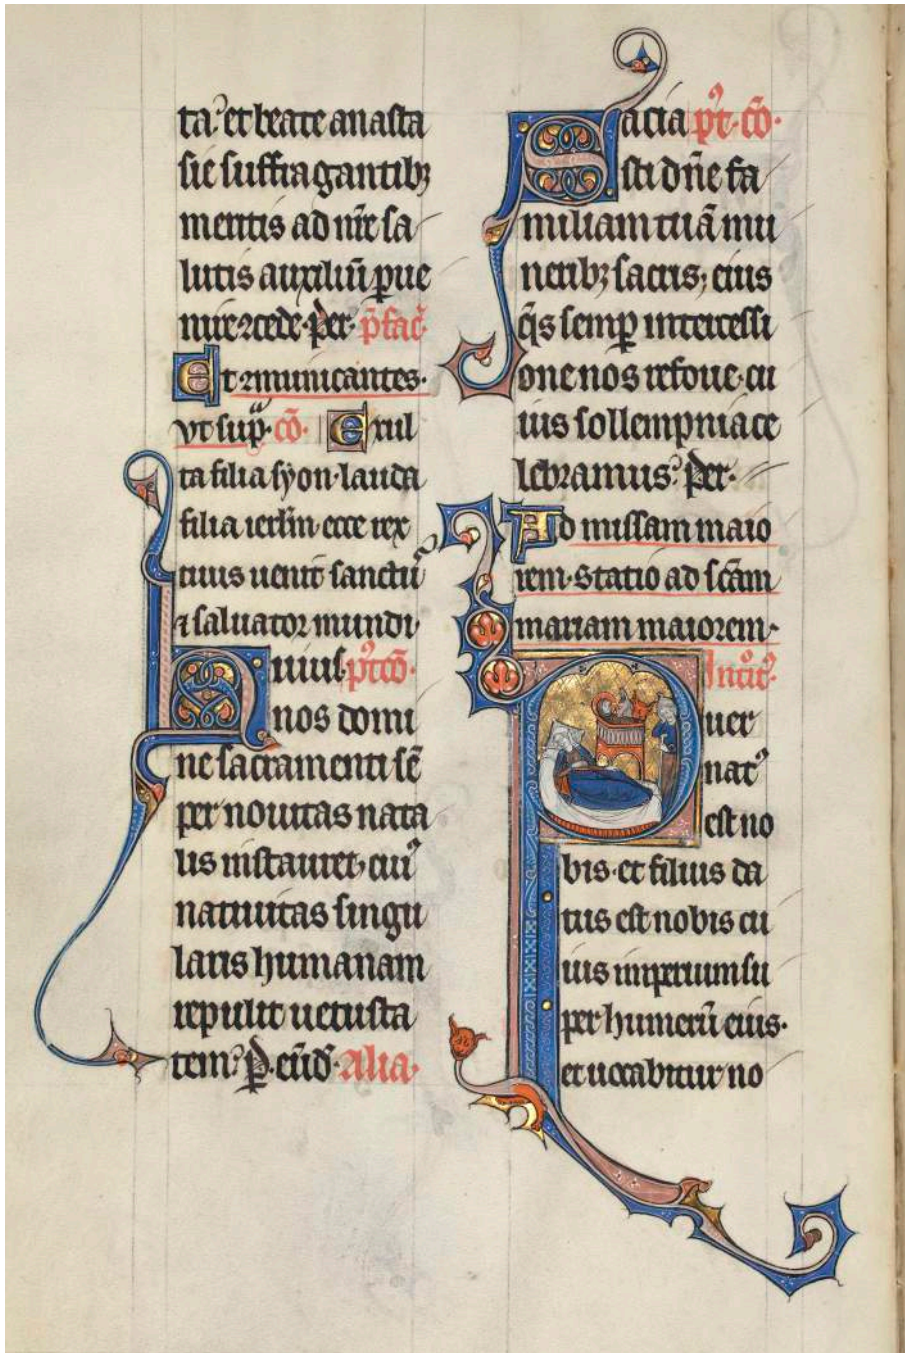 ta et beate anasta
sie suffragantibꝫ
meritis ad nr̄e sa
lutis auxiliū ꝓue
nire ꝯcede. per. p̄fac̄.
Et ꝯmunicantes.
vt sup̄ᵃ. cō. Exul
ta filia syon. lauda
filia ierłm ecce rex
tuus uenit sanctꝰ
⁊ saluator mundi.
uius p̓t cō.
Hnos domi
ne sacramenti sē
per nouitas nata
lis instauret, cuiꝰ
natiuitas singu
laris humanam
repulit uetusta
tem. ꝑ. eūd̓. Alia.
acia p̓t. cō.
Sasti dn̄e fa
miliam tuā mu
neribꝫ sacris, eius
q̄s semꝑ intercessi
one nos refoue. cu
ius sollempnia ce
lebramus. per.
Ad missam maio
rem. Statio ad scām
mariam maiorem.
Introit̓.
Puer
natꝰ
est no
bis. et filius da
tus est nobis cu
ius imperium su
per humerū eius.
et uocabitur no